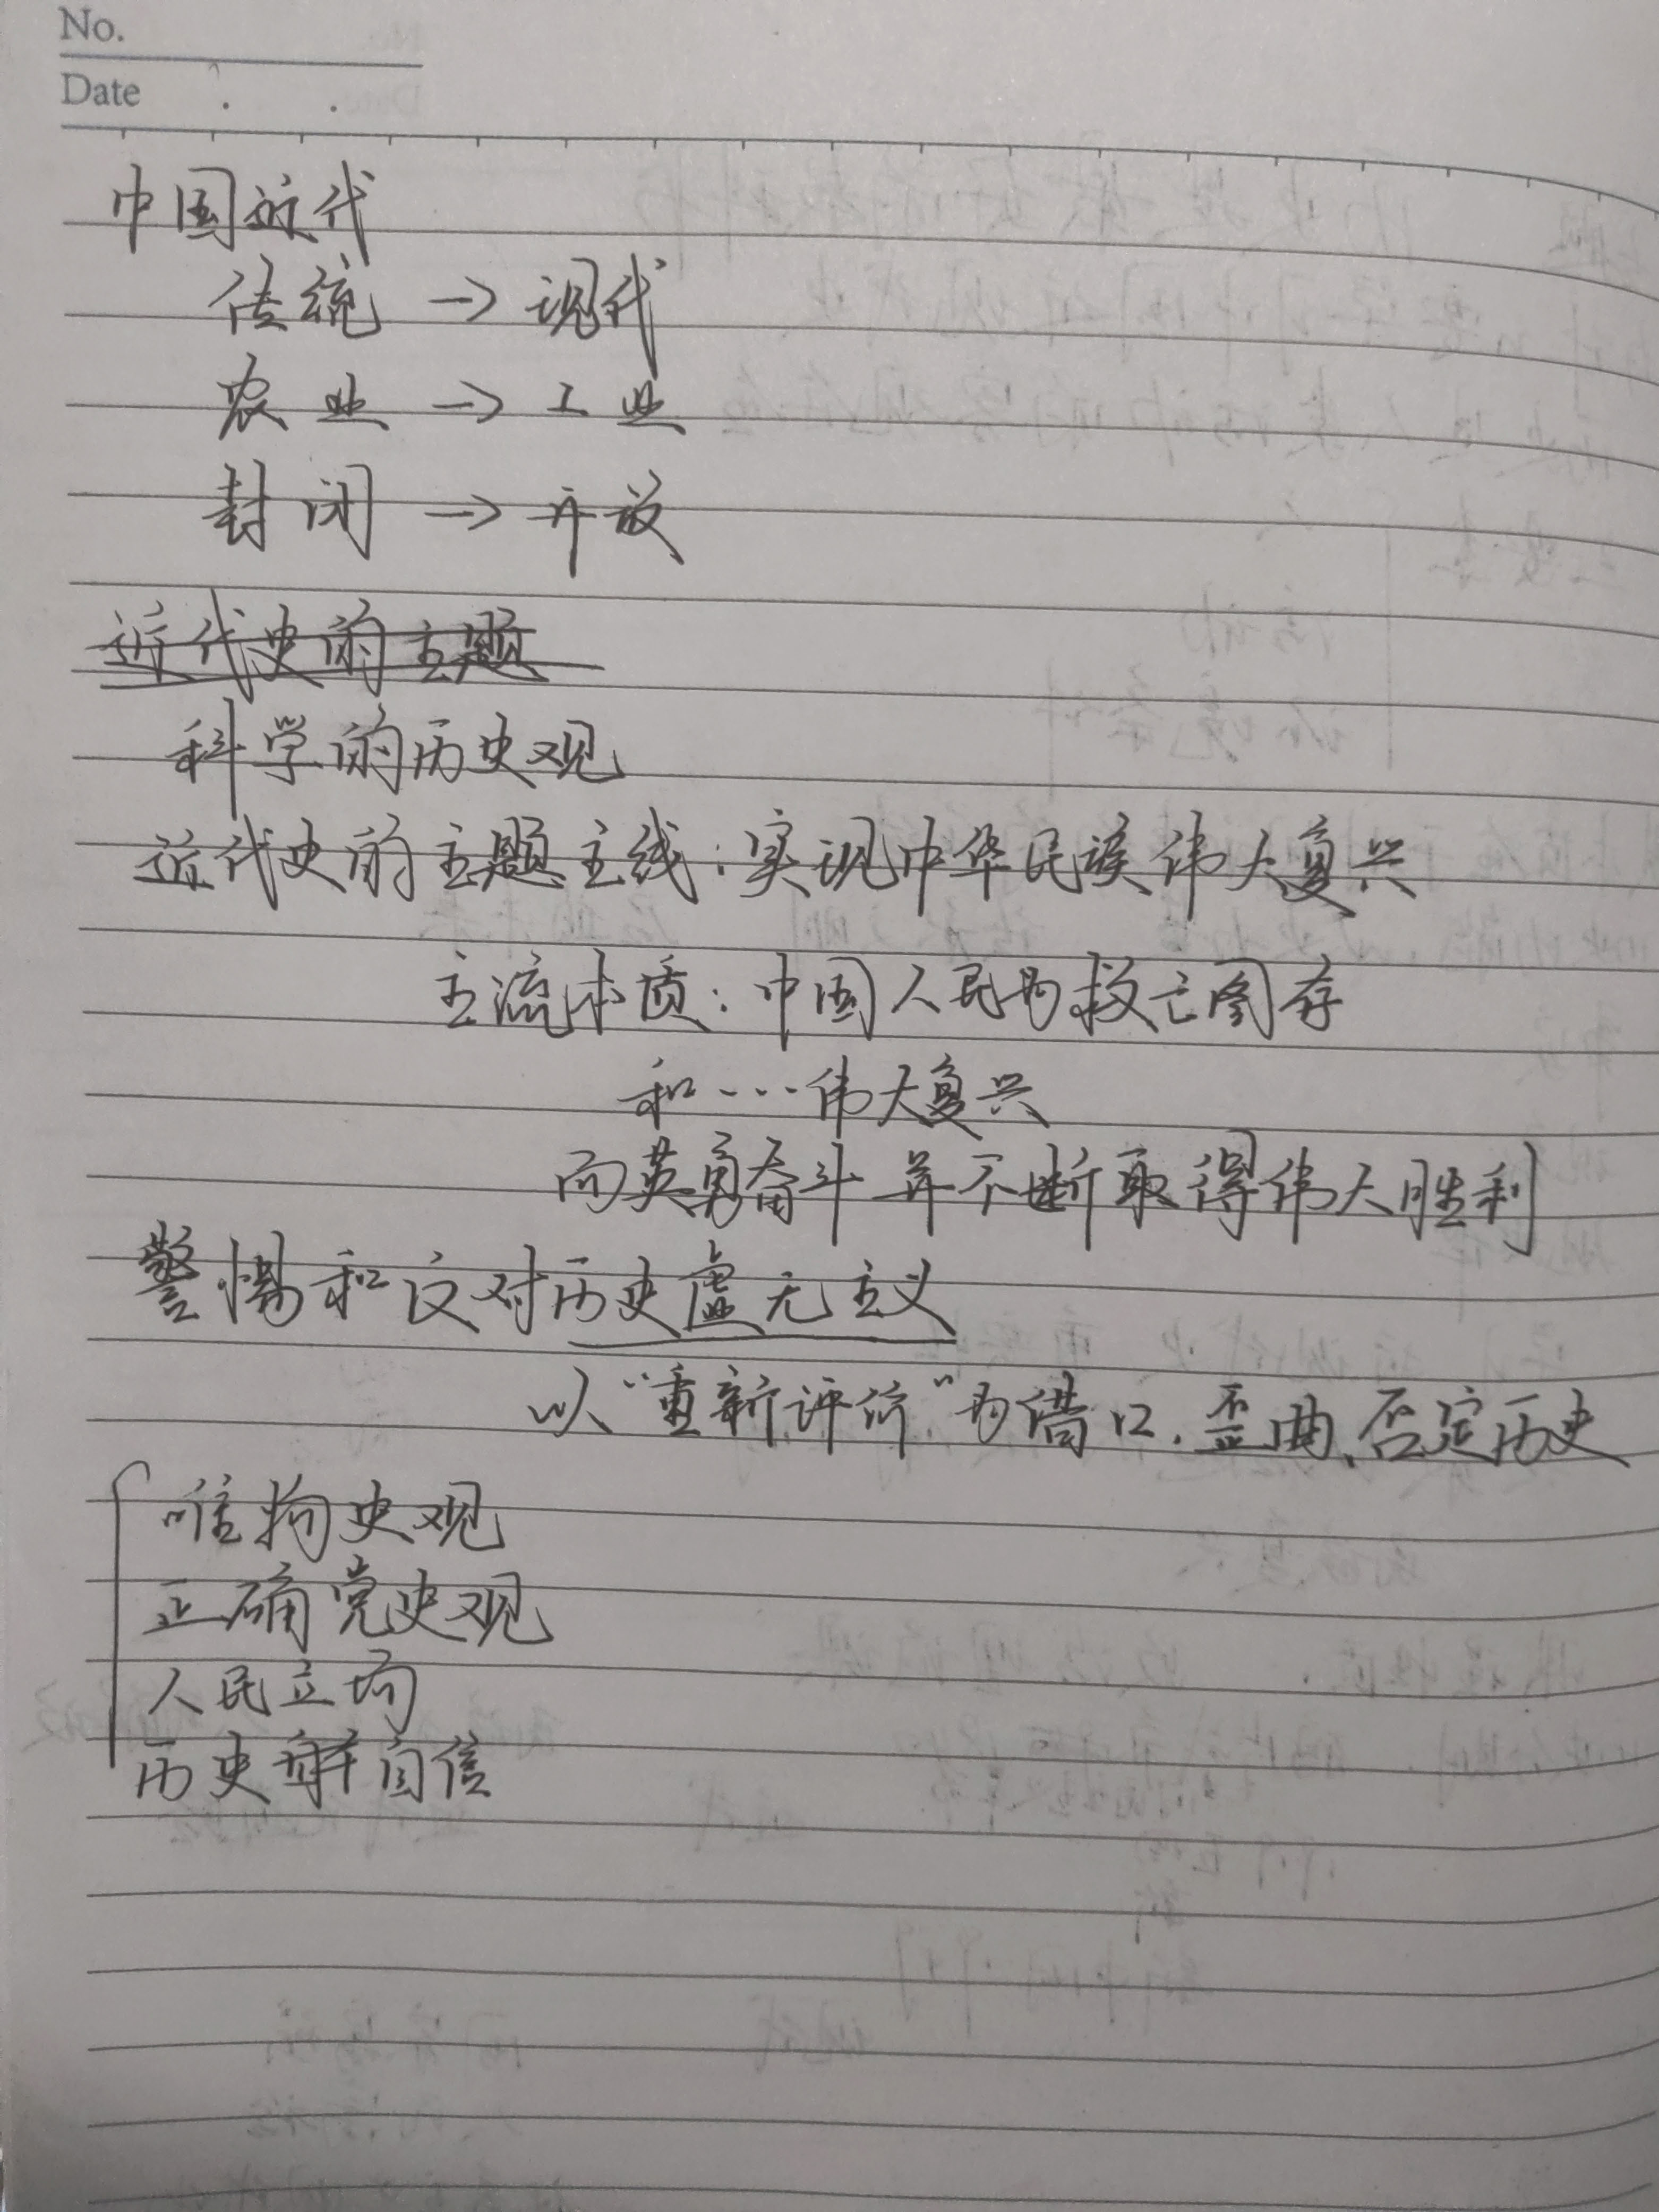 No.
Date . .
中国近代
传统 → 现代
农业 → 工业
封闭 → 开放
近代史的主题
科学的历史观
近代史的主题主线：实现中华民族伟大复兴
主流本质：中国人民为救亡图存
和…伟大复兴
而英勇奋斗 并不断取得伟大胜利
警惕和反对历史虚无主义
以“重新评价”为借口，歪曲、否定历史
唯物史观
正确党史观
人民立场
历史 自信